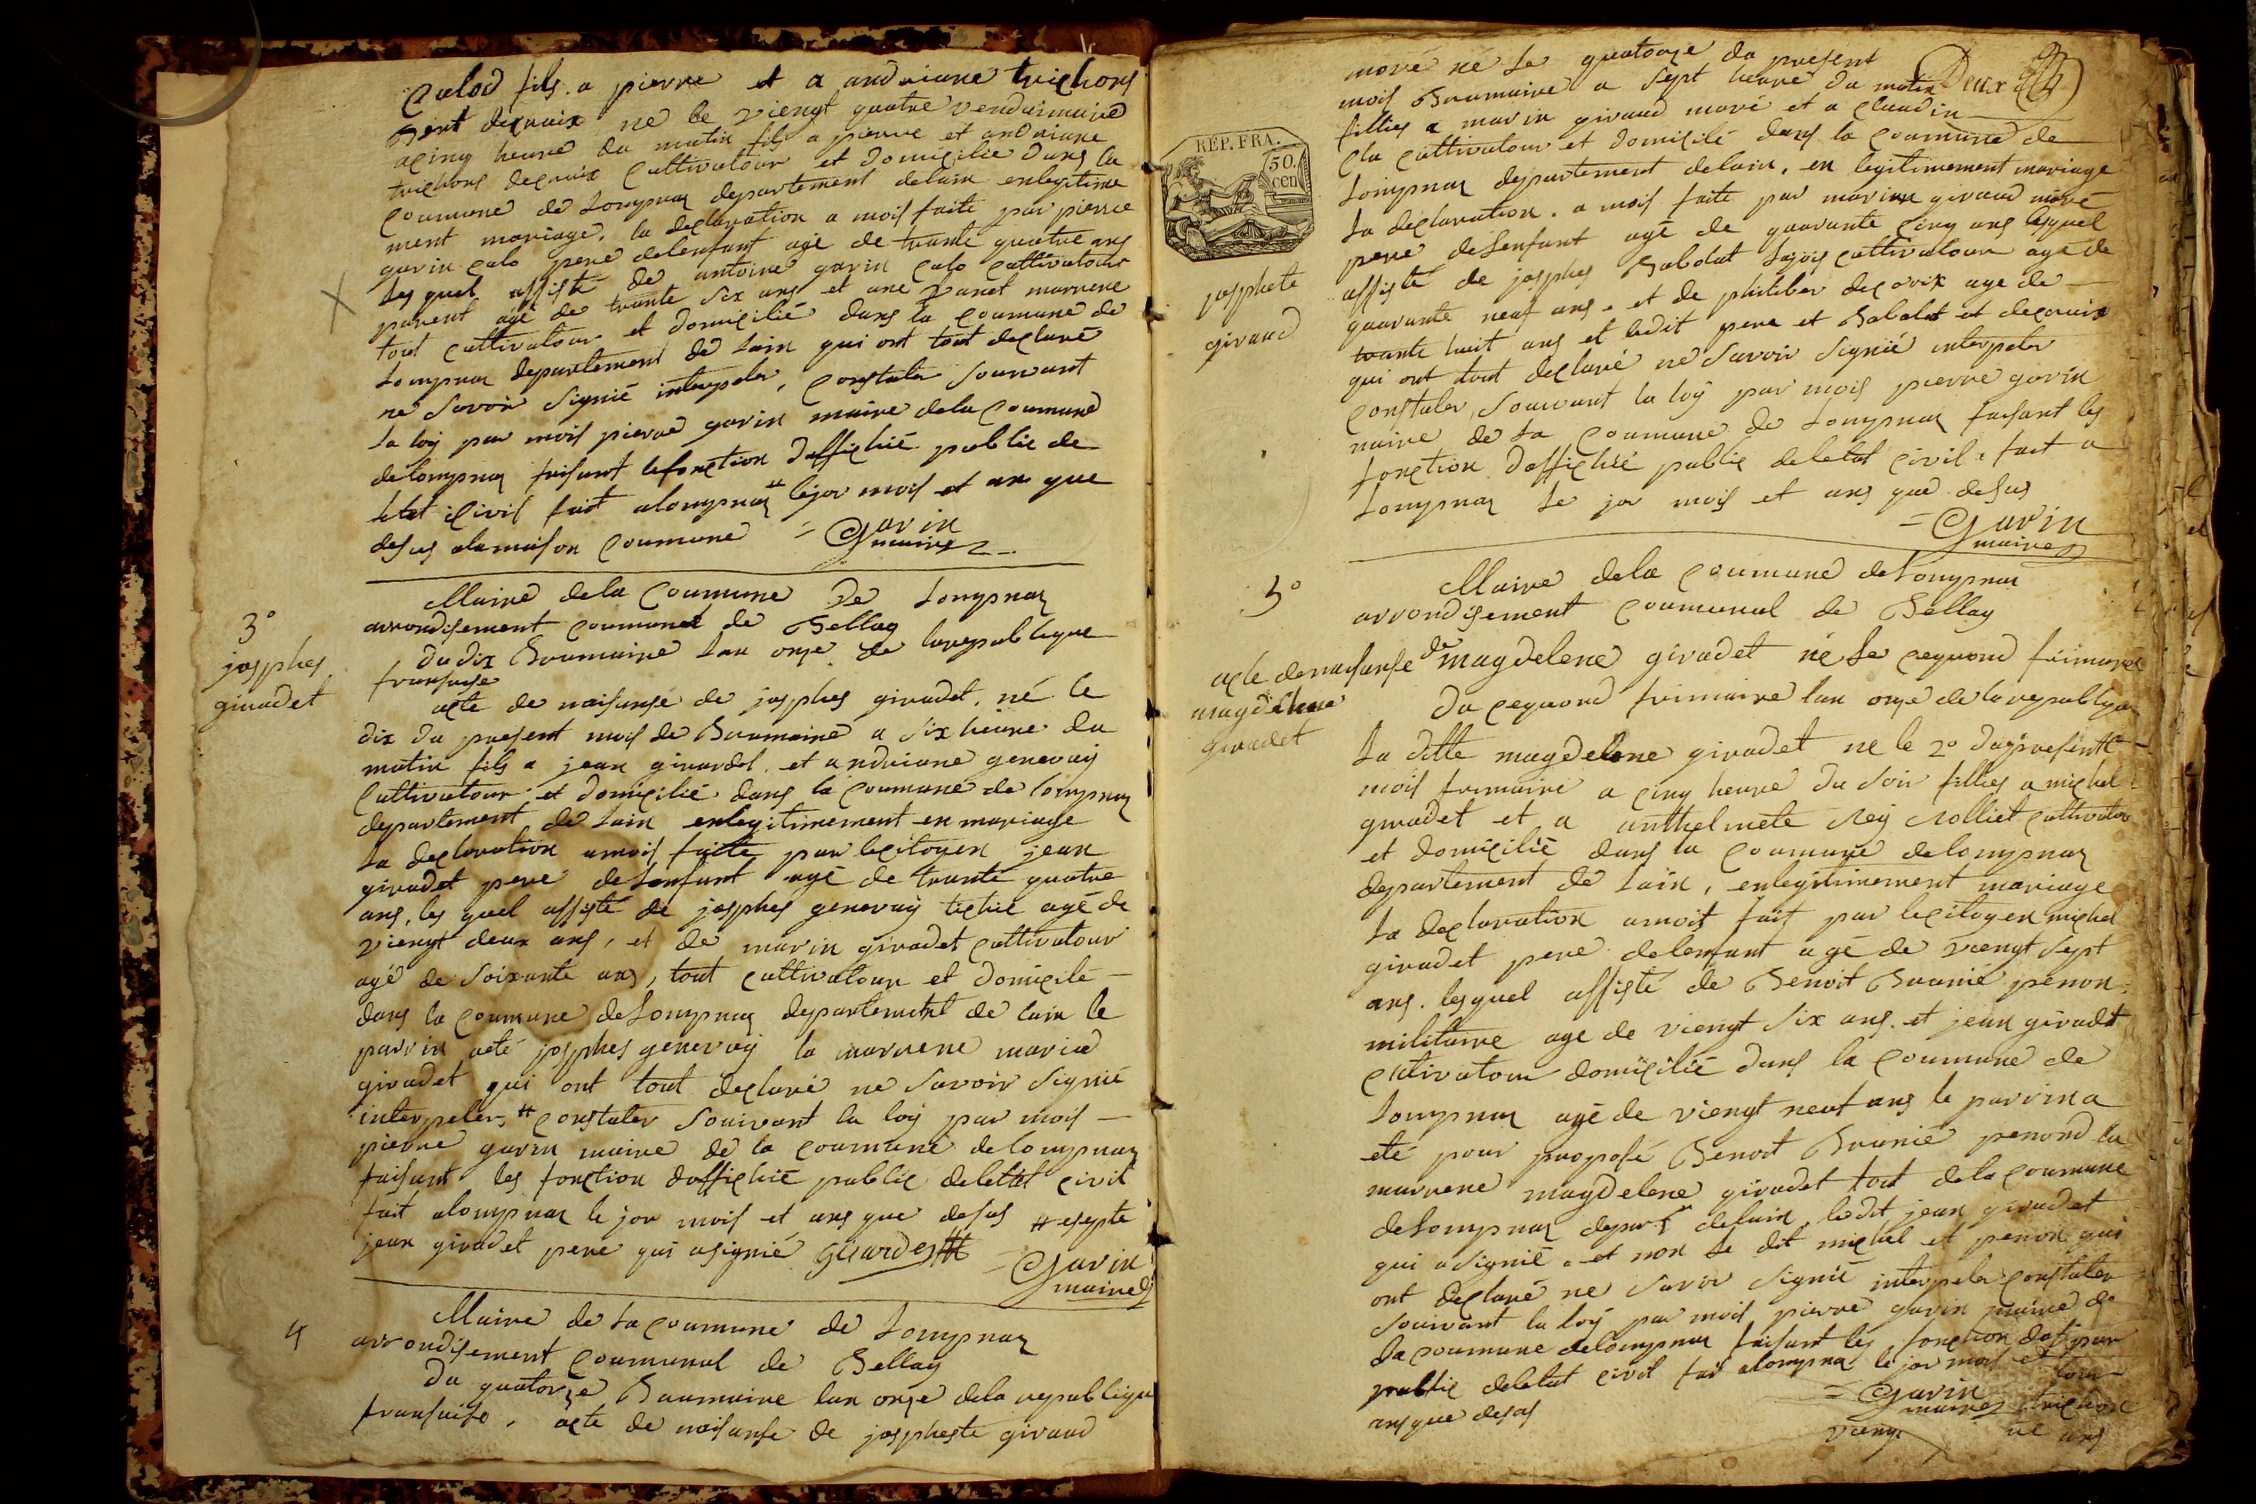 Calod fils a pierre et a andriane trichons
Bent decroix né le viengt quatre venduimaire
acinq heure du matin fils a pierre et andriane
trichons decroix Cultivatour et domicilié dans la
Coumune de Lompnaz departement delain enlegitime
ment mariage, la declaration a mois faite par pierre
gavin calo pere delenfant agé de trante quatre ans
lesquel assisté de antoine gavin calo cultivatour
parent agé de trante six ans et une marrene
tout cultivatour et domicilié dans la coumune de
Lompnaz departement de Lain qui ont tout declaré
ne savoir signié interpeler, constater souivant
la loy par mois pierre gavin maire dela coumune
delompnaz faisant lefonction daffichié public de
letat civil fait alompnaz lejor mois et an que
desus alamaison coumune = Gavin
maire
Maire dela Coumune de Lompnaz
arrondisement coumunal de Bellay
3°
josphes
giradet
du dix Brumaire lan onze de larepublique
fransaise
acte de naisanse de josphes giradet, né le
dix du present mois de Brumaire a six heure du
matin fils a jean girardet et andriane genevay
Cultivatour et domicilié dans la coumune de lompnaz
departement de Lain enlegitimement en mariage
la declaration amois faite par lecitoyen jean
giradet pere delenfant agé de trante quatre
ans, lesquel assisté de josphes genevay agé de
viengt deux ans, et de marin giradet cultivatour
agé de soixante ans, tout cultivatour et domicilé
dans la coumune delompnaz departement de lain le
parrin aeté josphes genevay la marrene maria
giradet qui ont tout declaré ne savoir signié
interpeler, # constater souivant la loy par mois
pierre gavin maire de la coumune delompnaz
faisant les fonction daffichié public deletat civil
fait alompnaz le jor mois et ans que desus # esepte
jean giradet pere qui asignié girardet # = Gavin
maire
4
Maire de la coumune de Lompnaz
arrondisement coumunal de Bellay
du quatorze Brumaire lan onze dela republique
fransaise, acte de naisanse de josphete giraud
Deux
moré né le quatorze du present
mois Brumaire a sept heure du matin
fillies a marin giraud moré et a claudin
cultivatour et domicilé dans la coumune de
Lompnaz departement delain, en legitimement mariage
La declaration a mois faite par marin giraud moré
pere delenfant agé de quarante cinq ans lesquel
assisté de josphes Babolat cultivatour agé de
quarante neuf ans et de philiber decroix age de
trante huit ans et ledit pere et Babolat et decroix
qui ont tout declaré ne savoir signié interpeler
constater, souivant la loy par mois pierre gavin
maire de la coumune de Lompnaz faisant les
fonction daffichié public deletat civil, fait a
Lompnaz le jor mois et ans que desus
= Gavin
maire
RÉP. FRA.
50.
cen
josphete
giraud
5°
Maire dela coumune deLompnaz
arrondisement coumunal de Bellay
acte denaisanse de magdelene giradet né le cequond frimaire
magdelene
giradet
du cequond frimaire lan onze de la republique
La ditte magdelene giradet né le 2° dupresentt
mois frimaire a cinq heure du soir fillies a michel
giradet et a anthelmete Rey Rolliet cultivatour
et domicilié dans la coumune delompnaz
departement de Lain, enlegitimement mariage
La declaration amois fait par lecitoyen michel
giradet pere delenfant agé de viengt sept
ans. lesquel assisté de Benoit Brunié penon
militaire age de viengt six ans. et jean giradet
cultivatour domicilié dans la coumune de
Lompnaz agé de viengt neuf ans le parrin a
eté pour proposé Benoit Brunié penond la
marrene magdelene giradet tout dela coumune
deLompnaz depart delain ledit jean giradet
qui asignié et non le dit michel et penon qui
ont declaré ne savoir signié interpeler constater
souivant la loy par mois pierre gavin maire de
la coumune delompnaz faisant les fonction
public deletat civil fait alompnaz le jor mois et
ans que desus = Gavin
maire